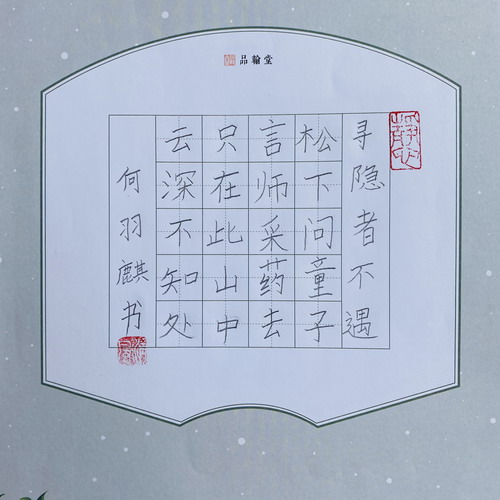 品翰堂
静心
寻隐者不遇
松下问童子
言师采药去
只在此山中
云深不知处
何羽麒书